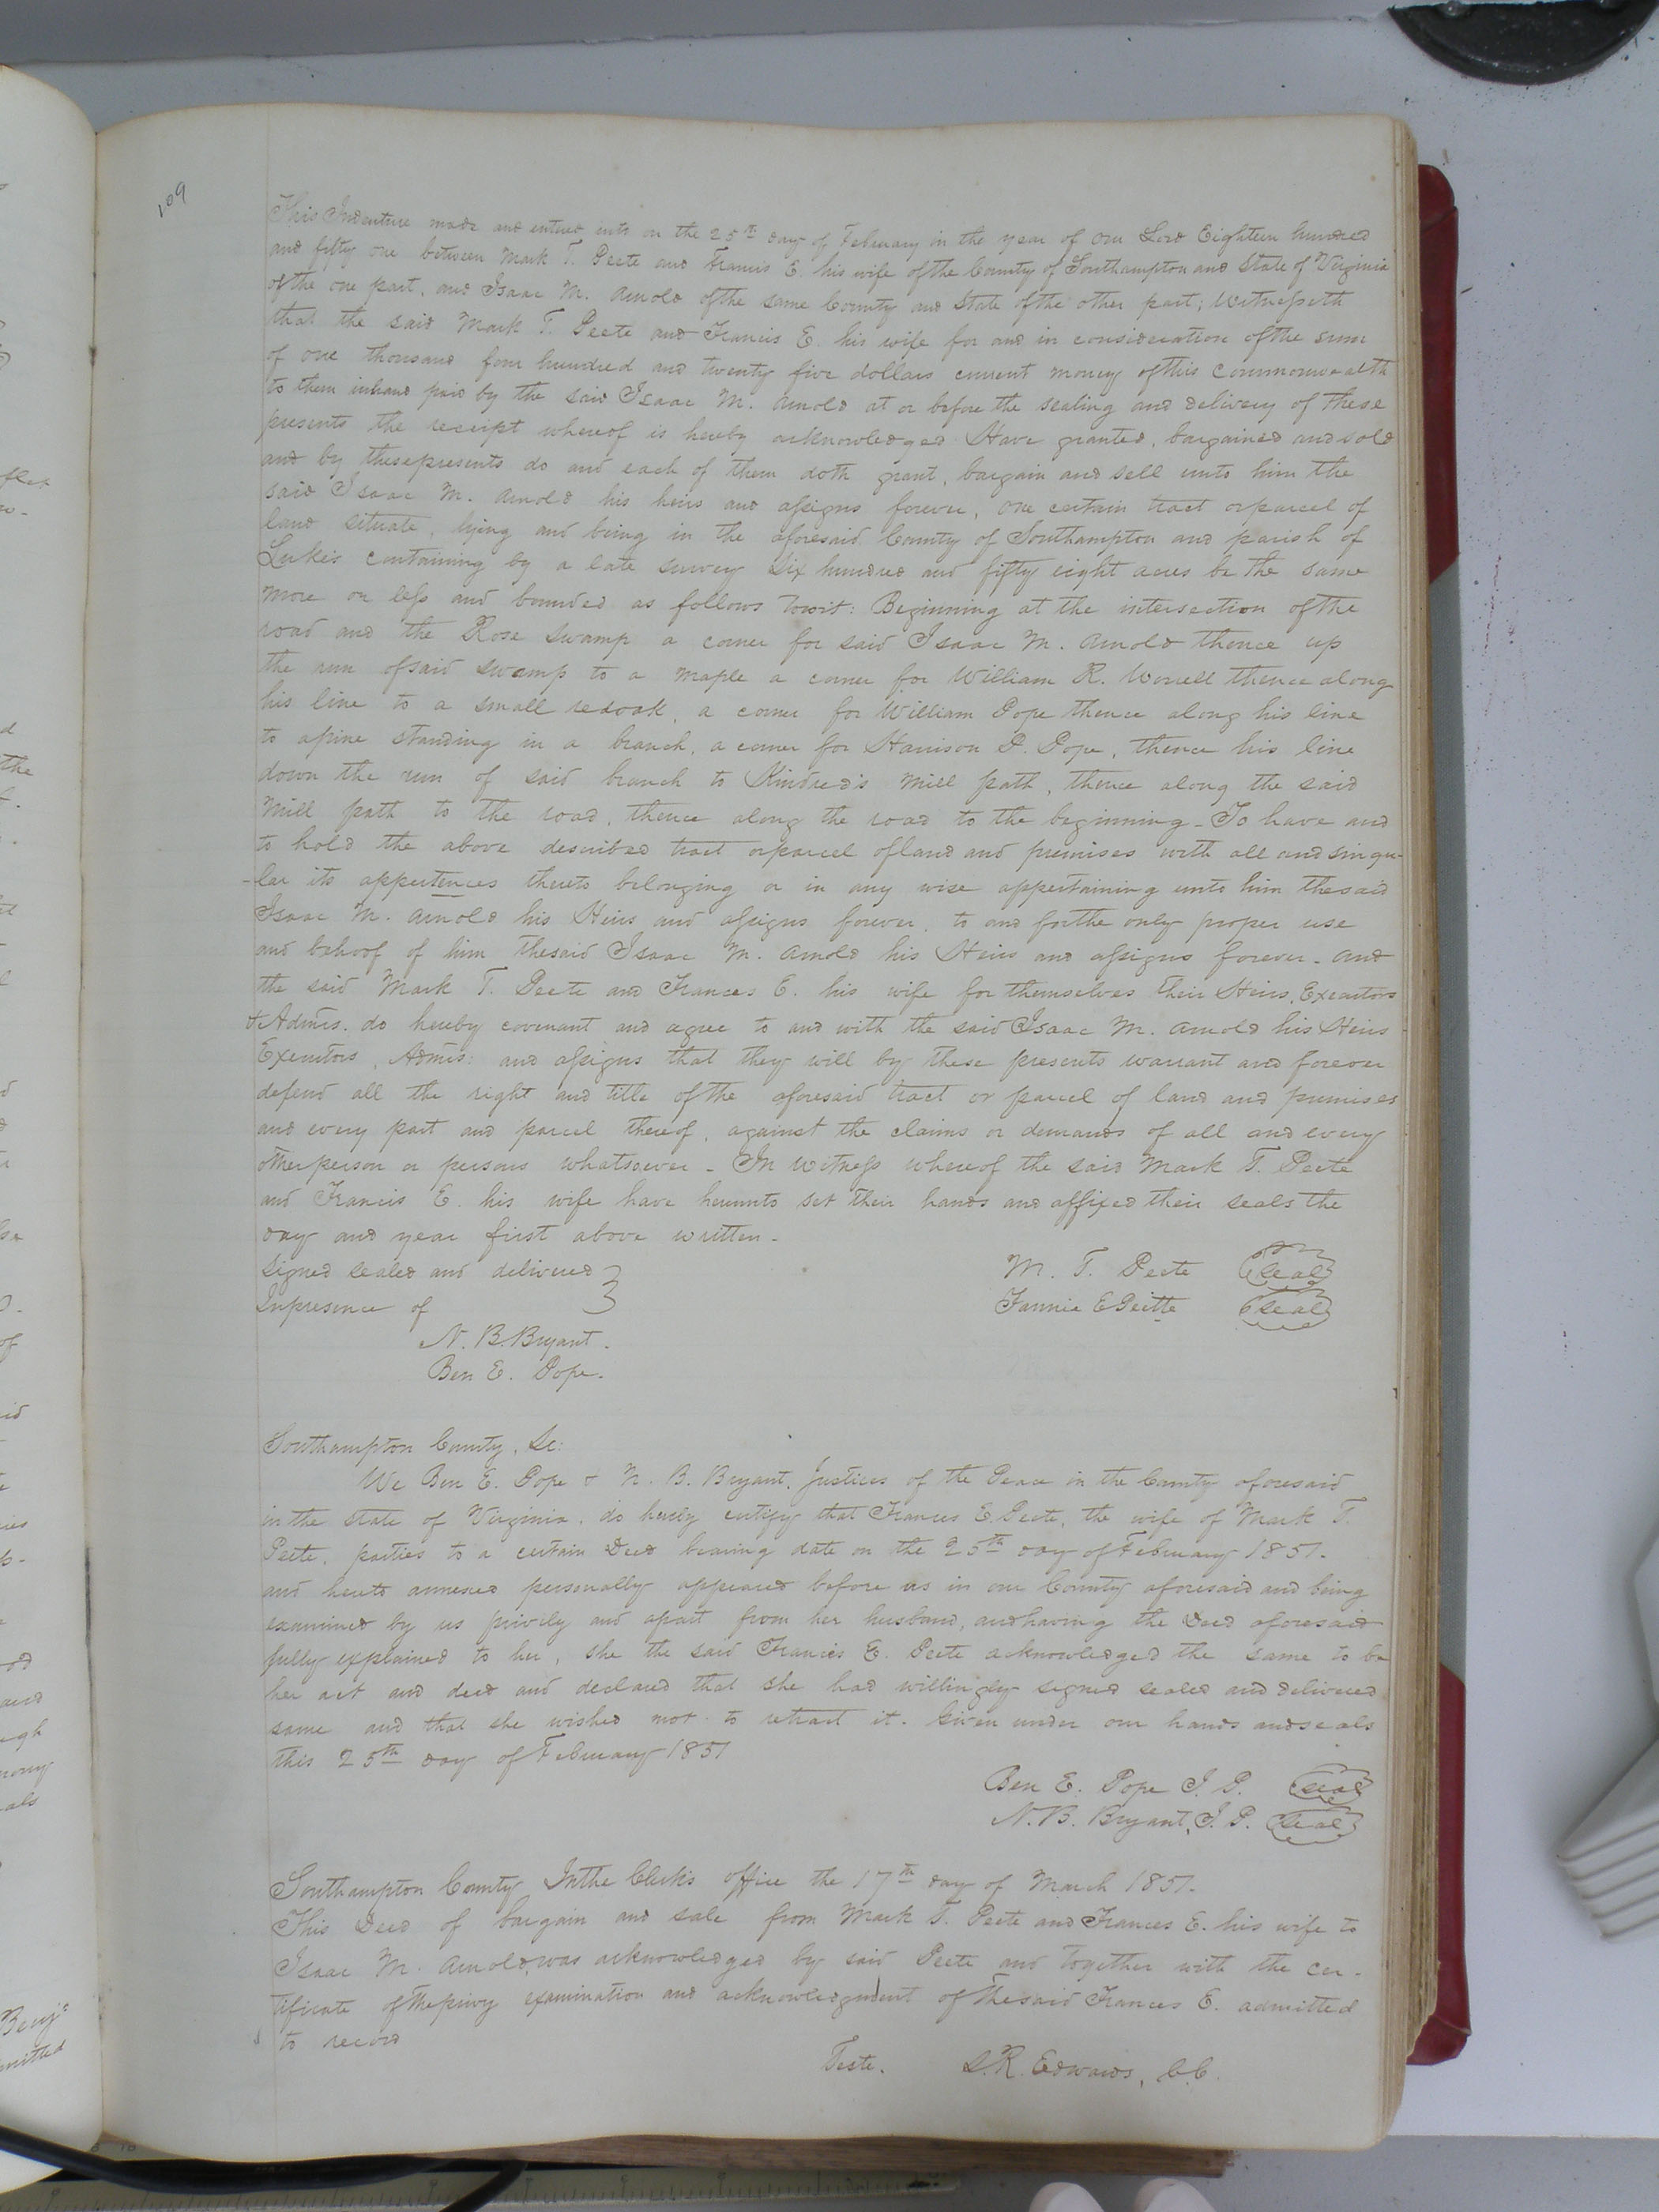 109
This Indenture made and entered into on the 25th day of February in the year of our Lord Eighteen hundred
and fifty one between Mark T. Peete and Francis E. his wife of the County of Southampton and State of Virginia
of the one part, and Isaac M. Arnold of the same County and State of the other part; Witnesseth
that the said Mark T. Peete and Francis E. his wife for and in consideration of the sum
of one thousand four hundred and twenty five dollars current money of this Commonwealth
to them inhand paid by the said Isaac M. Arnold at or before the sealing and delivery of these
presents the receipt whereof is hereby acknowledged Have granted, bargained and sold
and by these presents do and each of them doth grant, bargain and sell unto him the
said Isaac M. Arnold his heirs and assigns forever, one certain tract or parcel of
land situate, lying and being in the aforesaid County of Southampton and parish of
Lukes containing by a late survey Six hundred and fifty eight acres be the same
more or less and bounded as follows Towit: Beginning at the intersection of the
road and the Rose Swamp a corner for said Isaac M. Arnold thence up
the run of said swamp to a maple a corner for William R. Worrell thence along
his line to a small redoak, a corner for William Pope thence along his line
to a pine standing in a branch, a corner for Harrison P. Pope, thence his line
down the run of said branch to Kindred's Mill path, thence along the said
Mill path to the road, thence along the road to the beginning - To have and
to hold the above described tract or parcel of land and premises with all and singu-
-lar its appertences thereto belonging or in any wise appertaining unto him the said
Isaac M. Arnold his Heirs and assigns forever, to and for the only proper use
and behoof of him the said Isaac M. Arnold his Heirs and assigns forever - and
the said Mark T. Peete and Frances E. his wife for themselves their Heirs, Executors
& Admrs. do hereby covenant and agree to and with the said Isaac M. Arnold his Heirs
Executors, Admrs: and assigns that they will by these presents warrant and forever
defend all the right and title of the aforesaid tract or parcel of land and premises
and every part and parcel thereof, against the claims or demands of all and every
other person or persons whatsoever - In witness whereof the said Mark T. Peete
and Francis E. his wife have hereunto set their hands and affixed their seals the
day and year first above written -
Signed sealed and delivered
In presence of
M. T. Peete Seal
Fannie E Peitte Seal
N. B. Bryant.
Ben E. Pope.
Southampton County, Sc:
We Ben E. Pope & N. B. Bryant, Justices of the Peace in the County aforesaid
in the state of Virginia, do hereby certify that Frances E. Peete, the wife of Mark T.
Peete, parties to a certain Deed bearing date on the 25th day of February 1851.
and hereto annexed personally appeared before us in our County aforesaid and being
examined by us privily and apart from her husband, and having the Deed aforesaid
fully explained to her, she the said Francis E. Peete acknowledged the same to be
her act and deed and declared that she had willingly signed sealed and delivered
same and that she wished not to retract it. Given under our hands and seals
this 25th day of February 1851
Ben E. Pope J. P. Seal
N. B. Bryant, J. P. Seal
Southampton County In the Clerks office the 17th day of March 1851.
This Deed of bargain and sale from Mark T. Peete and Frances E. his wife to
Isaac M. Arnold, was acknowledged by said Peete and together with the cer-
tificate of the privy examination and acknowledgment of the said Frances E. admitted
to record
Teste. L. R. Edwards, C.C.